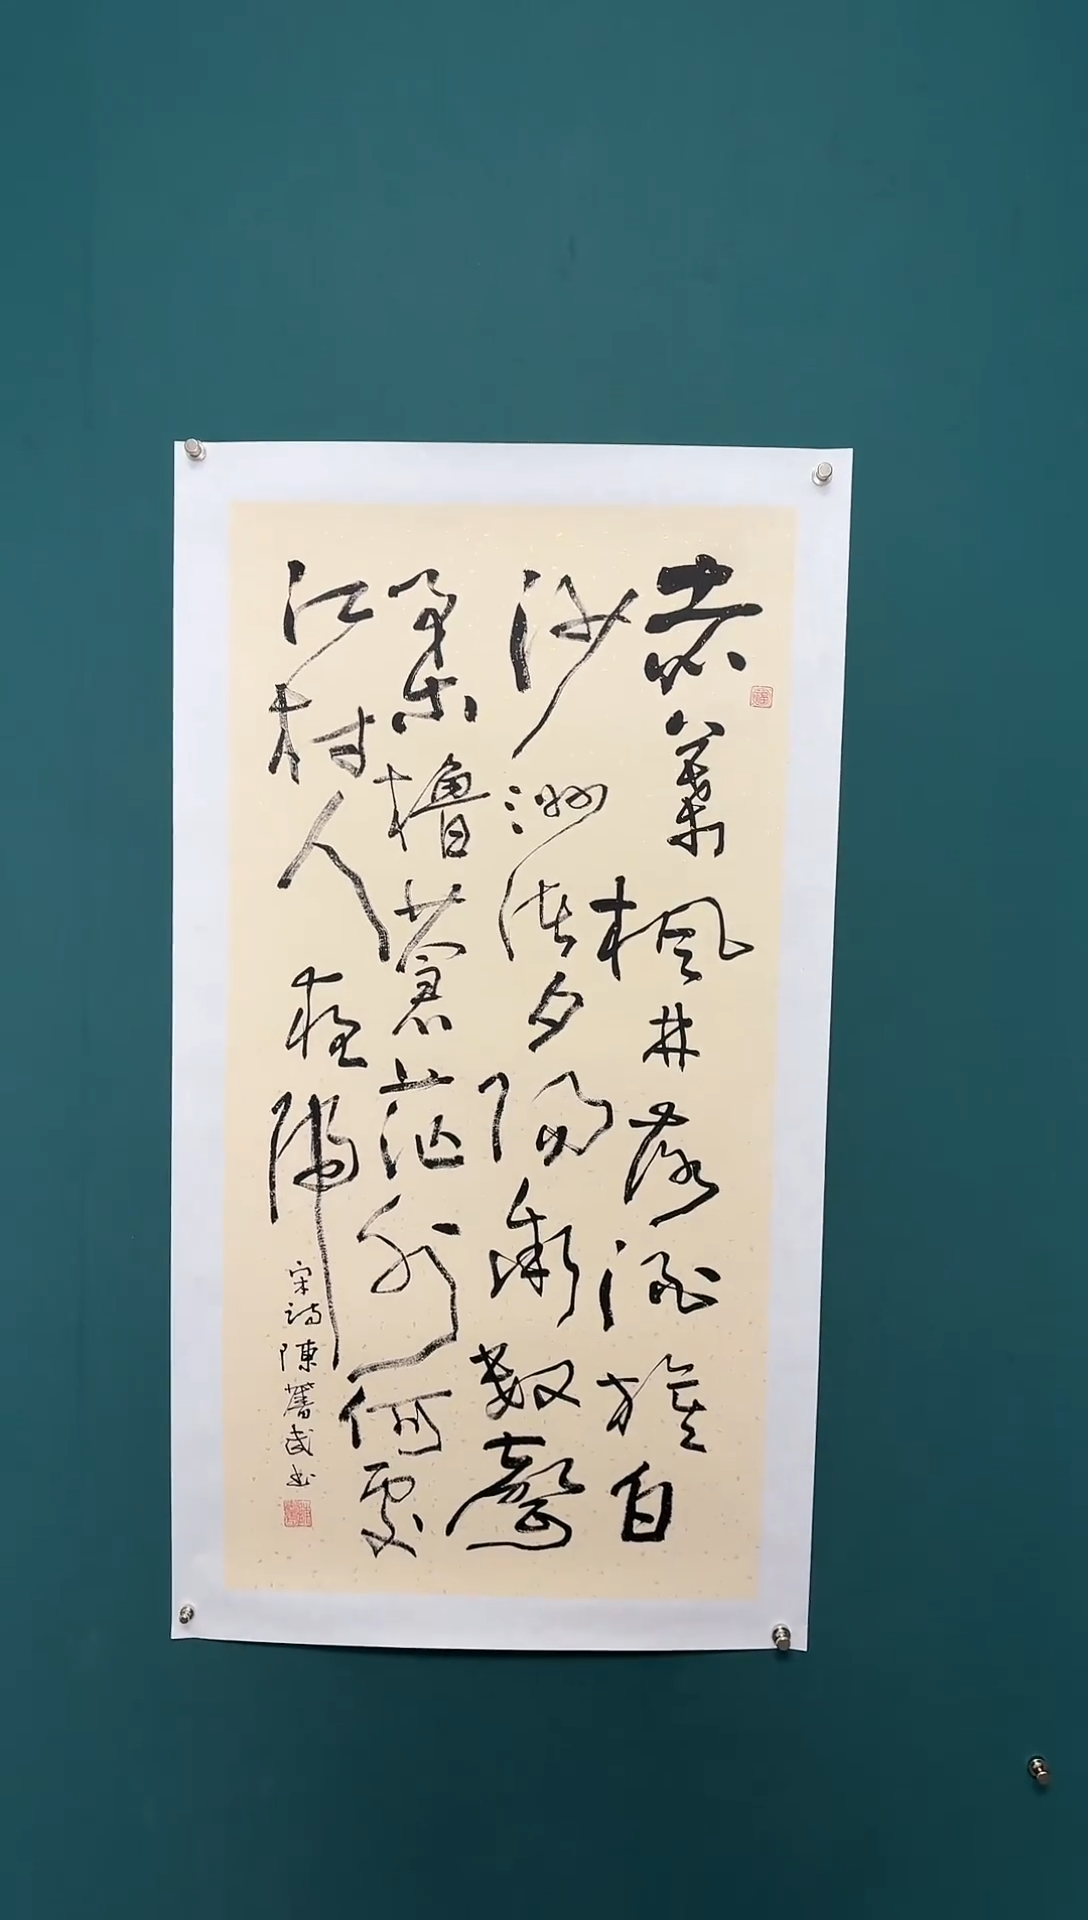 赤葉楓林落酒旗白
沙洲渚夕陽微數聲
柔櫓蒼茫外何處
江村人夜歸
宋詩 陳 武书